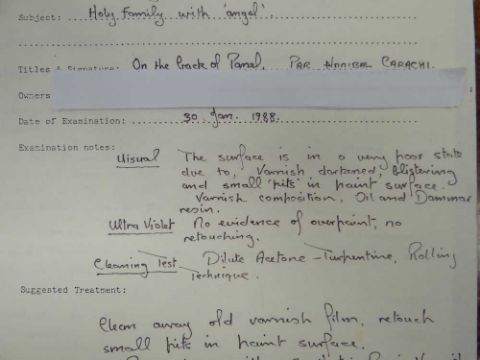 Subject: Holy Family with 'angel'.
Titles & Signature: On the back of Panel. PAR ANNIBAL CARACHI.
Owners
Date of Examination: 30 Jan. 1988.
Examination notes:
Visual The surface is in a very poor state
due to, Varnish darkened; blistering
and small 'pits' in paint surface.
Varnish composition, Oil and Dammar
resin.
Ultra Violet No evidence of overpaint, no
retouching.
Cleaning Test Dilute Acetone - Turpentine, Rolling
Technique.
Suggested Treatment:
Clean away old varnish film, retouch
small pits in paint surface.